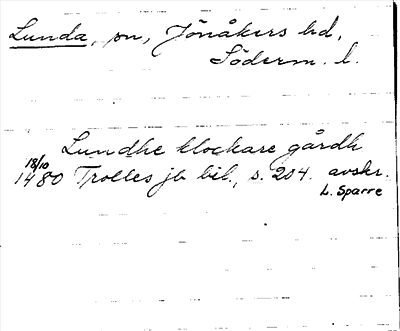 Lunda, sn, Jönåkers hd,
Söderm. l.
Lundhe klockare gårdh
18/10
1480 Trolles jb bil., s. 204. avskr.
L. Sparre